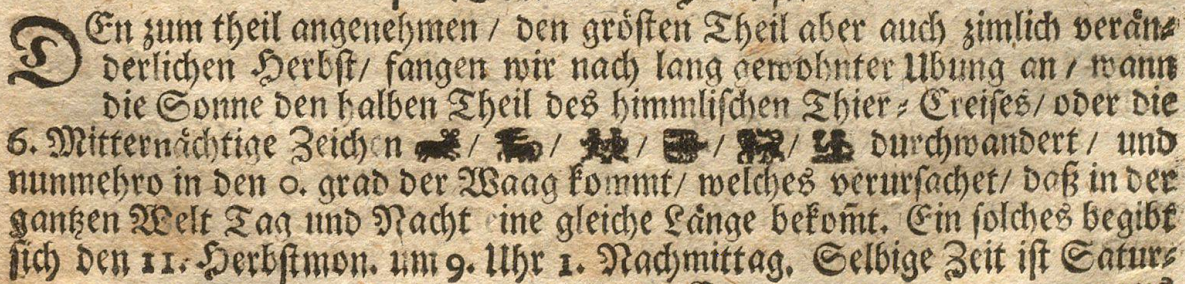 DEn zum theil angenehmen / den grösten Theil aber auch zimlich verän⸗
derlichen Herbst/ fangen wir nach lang gewohnter Ubung an / wann
die Sonne den halben Theil des himmlischen Thier⸗Creises/ oder die
6. Mitternächtige Zeichen / / / / / durchwandert / und
nunmehro in den 0. grad der Waag kommt/ welches verursachet/ daß in der
gantzen Welt Tag und Nacht eine gleiche Länge bekom̃t. Ein solches begibt
sich den 11. Herbstmon. um 9. Uhr 1. Nachmittag. Selbige Zeit ist Satur⸗